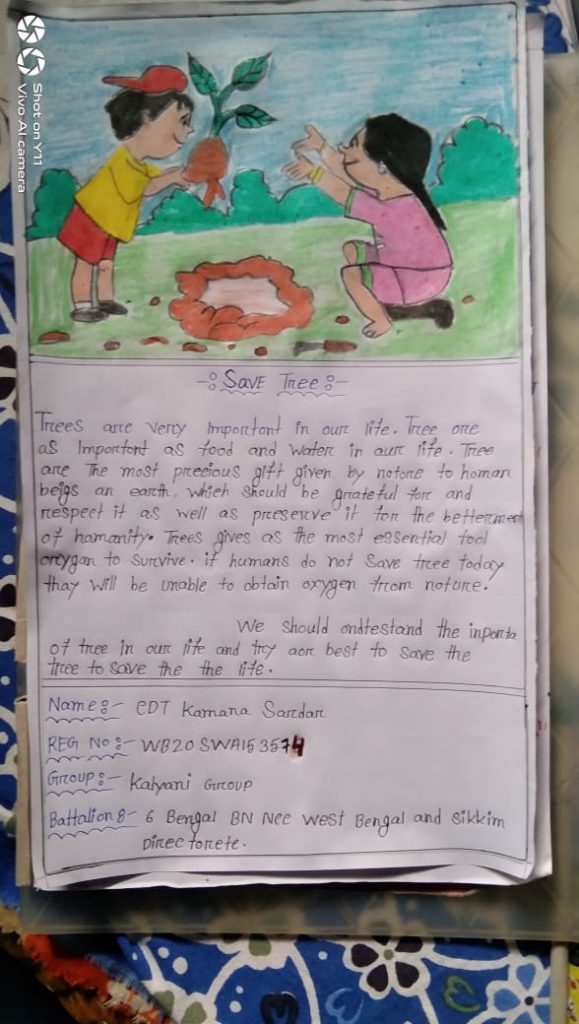 Shot on Y11
Vivo AI camera
-: SAVE Tree :-
Trees are very Important in our life. Tree are
as Important as food and water in our life. Tree
are The most precious gift given by notore to homan
beigs an earth, which should be grateful for and
respect it as well as preserve it for the betterment
of hamanity. Trees gives as the most essential fool
oxygan to survive. if humans do not Save tree today
thay will be unable to obtain oxygen from notore.
We should ondtestand the inporta
of tree in our life and try aor best to save the
tree to save the the life.
Name :- CDT Kamana Sardar
REG No :- WB20SWA153574
Group :- Kalyani Group
Battalion :- 6 Bengal BN Ncc West Bengal and Sikkim
Directorete.